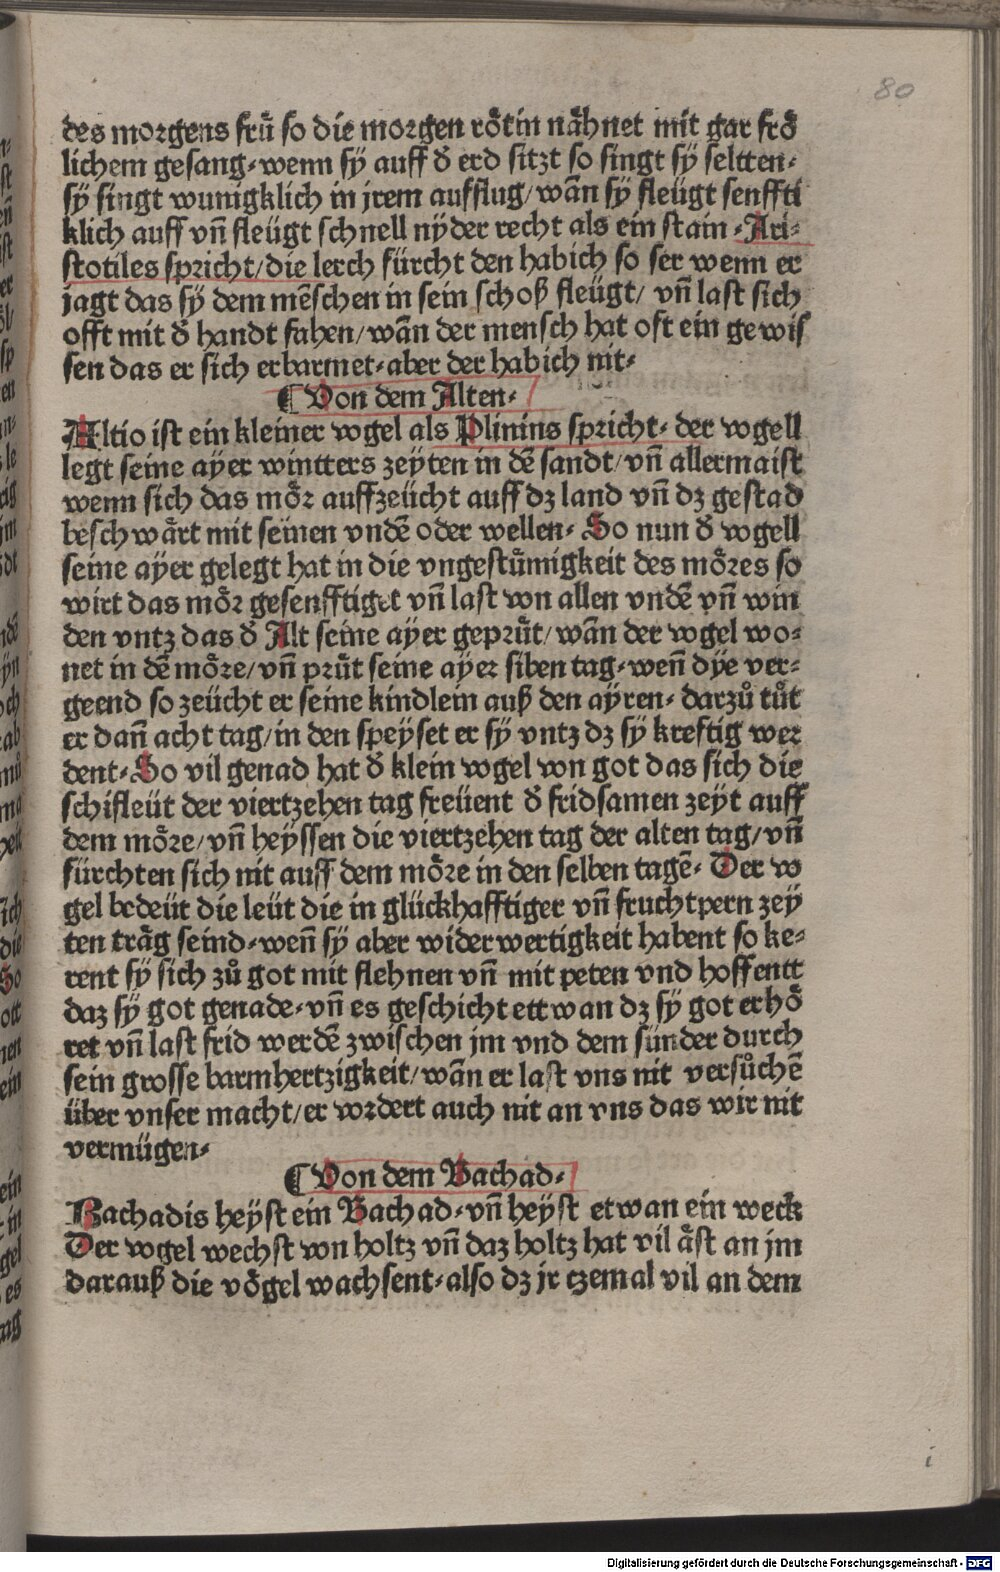 80
des morgens frů so die morgen rötin nähnet mit gar frö
lichem gesang. wenn sÿ auff đ erd sitzt so singt sÿ seltten.
sÿ singt wunigklich in jrem aufflug/ wañ sÿ fleügt senffti
klich auff vñ fleügt schnell nÿder recht als ein stain. Ari-
stotiles spricht/ die lerch fürcht den habich so ser wenn er
jagt das sÿ dem mēschen in sein schoß fleügt/ vñ last sich
offt mit đ handt fahen/ wañ der mensch hat oft ein gewis
sen das er sich erbarmet. aber der habich nit.
¶ Von dem Alten.
Altio ist ein kleiner vogel als Plinins spricht. der vogell
legt seine ayer wintters zeÿten in dē sandt/ vñ allermaist
wenn sich das mör auffzeücht auff dz land vñ dz gestad
beschwärt mit seinen vndē oder wellen. So nun đ vogell
seine aÿer gelegt hat in die vngestümigkeit des möres so
wirt das mör gesenfftiget vñ last von allen vndē vñ win
den vntz das đ Alt seine aÿer geprůt/ wañ der vogel wo-
net in dē möre/ vñ průt seine aÿer siben tag. weñ dÿe ver-
geend so zeücht er seine kindlein auß den aÿren. darzů tůt
er dañ acht tag/ in den speÿset er sÿ vntz dz sÿ kreftig wer
dent. So vil genad hat đ klein vogel von got das sich die
schifleüt der viertzehen tag freüent đ fridsamen zeÿt auff
dem möre/ vñ heÿssen die viertzehen tag der alten tag/ vñ
fürchten sich nit auff dem möre in den selben tagē. Der vo
gel bedeüt die leüt die in glückhafftiger vñ fruchtpern zeÿ
ten träg seind. weñ sÿ aber widerwertigkeit habent so ke-
rent sÿ sich zů got mit flehnen vñ mit peten vnd hoffentt
daz sÿ got genade. vñ es geschicht ettwan dz sÿ got erhö
ret vñ last frid werdē zwischen jm vnd dem sünder durch
sein grosse barmhertzigkeit/ wañ er last vns nit versůchē
über vnser macht/ er vordert auch nit an vns das wir nit
vermügen.
¶ Von dem Bachad.
Bachadis heÿst ein Bachad. vñ heÿst etwan ein weck
Der vogel wechst von holtz vñ daz holtz hat vil äst an jm
darauß die vögel wachsent. also dz jr tzemal vil an dem
i
Digitalisierung gefördert durch die Deutsche Forschungsgemeinschaft - DFG